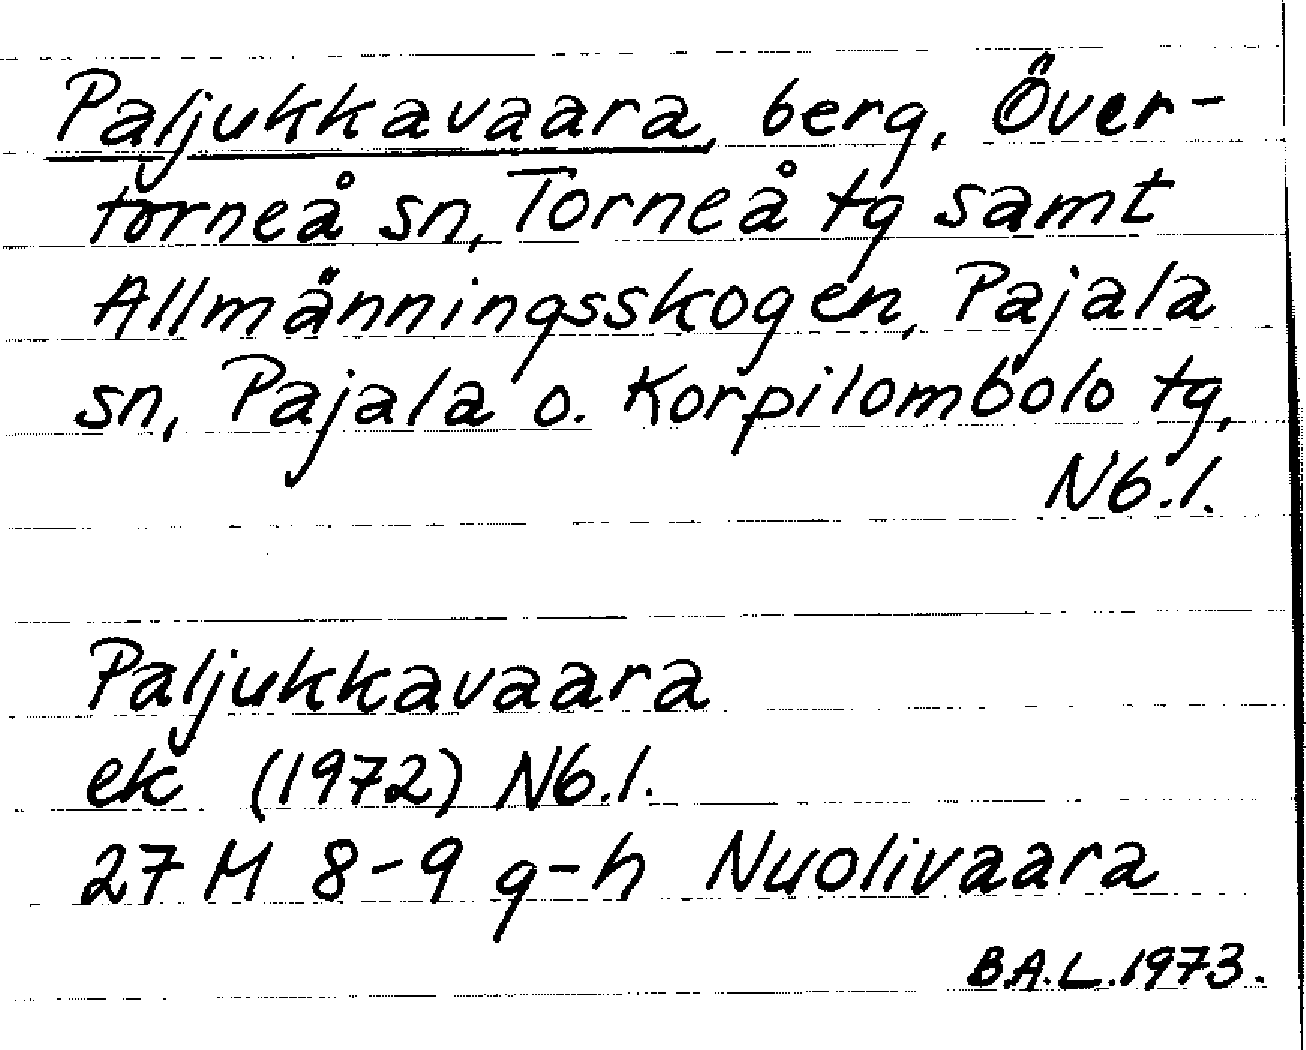 Paljukkavaara, berg, Över-
torneå sn, Torneå tg samt
Allmänningsskogen, Pajala
sn, Pajala o. Korpilombolo tg,
Nb.l.
Paljukkavaara
ek (1972) Nb.l.
27 M 8-9 g-h Nuolivaara
B.A.L. 1973.